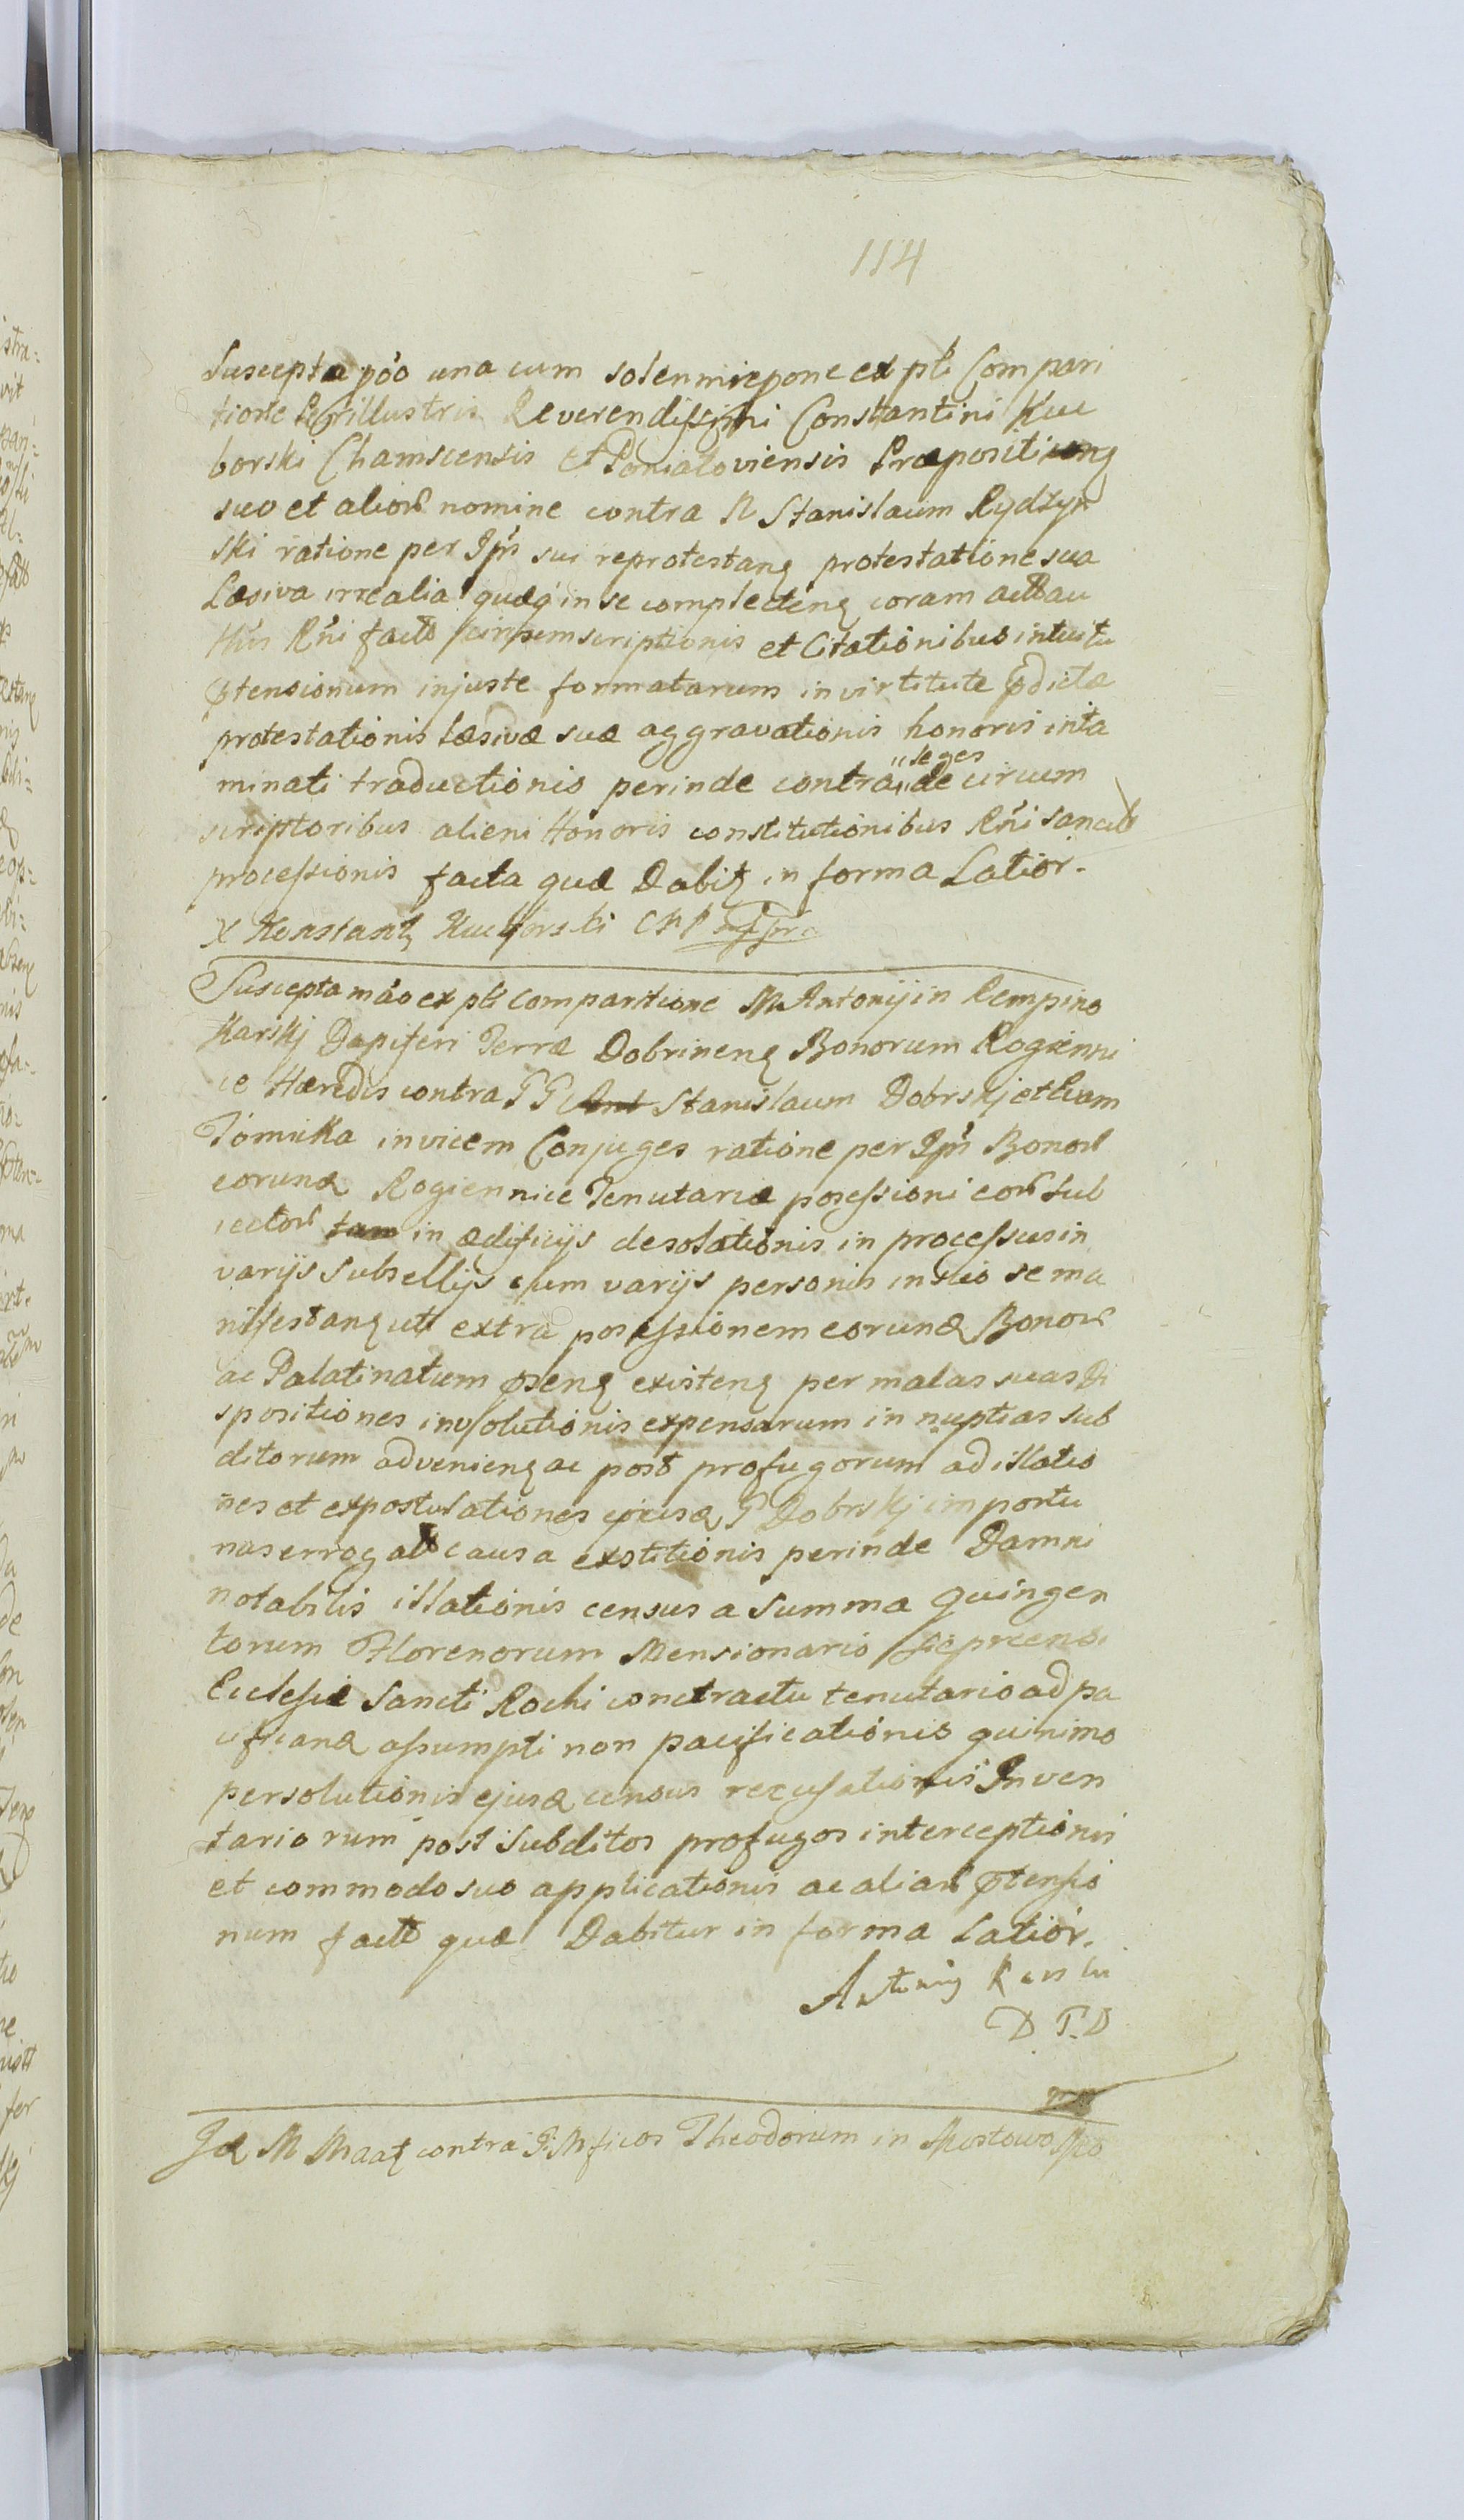 114
Suscepta póo una cum solenni repone ex pti Compari
tione Perillustris Reverendissimi Constantini Kuc
borski Chamscensis et Poniatoviensis Præpositi
suo et alior nomine contra N Stanislaum Rydzyn
ski ratione per Ipm sui reprotestan protestatione sua
Læsiva irrealia quæq in se complecten coram act au
this Rni fact circumscriptionis et Citationibus intuitu
ptensionum injuste formatarum in virtitute pdictæ
protestationis læsivæ suæ aggravationis honoris inta
minati traductionis perinde contra leges de circum
scriptoribus alieni Honoris constitutionibus Rni sancit
processionis facta quæ Dabit in forma Latior.
X Konstant Kucborski C P mppria
Suscepta máo ex pti comparitione M Antonij in Rempino
Karskj Dapiferi Terræ Dobrinen Bonorum Rogienni
ce Hæredis contra G G Ant Stanislaum Dobrskj et Evam
Tomicka invicem Conjuges ratione per Ipm Bonor
eorund Rogiennice Tenutariæ posessioni eor sub
iector tam in ædificijs desolationis in processus in
varijs Subsellijs cum varijs personis in se ma
nifestan uti extra posessionem eorund Bonor
ac Palatinatum psens existen per malas suas Di
spositiones involutionis expensarum in nuptias sub
ditorum advenien ac post profugorum ad illatio
nes et expostulationes ejusd G Dobrskj importu
nas errogat causa exstitionis perinde Damni
notabilis illationis census a Summa Quingen
torum Florenorum Mensionario Sieprcensi
Ecclesiæ Sancti Rochi conctractu tenutario ad pa
cificand assumpti non pacificationis quinimo
persolutionis ejusd census recusationis Inven
tariorum post Subditos profugos interceptionis
et commodo suo applicationis ac aliar ptensio
num fact quæ Dabitur in forma Latior.
Antoni Karski
D T. D
mp
Id M contra G: Mficos Theodorum in Mostowo Mo